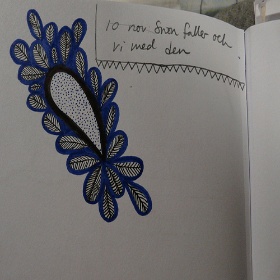 10 nov. Snön faller och
vi med den